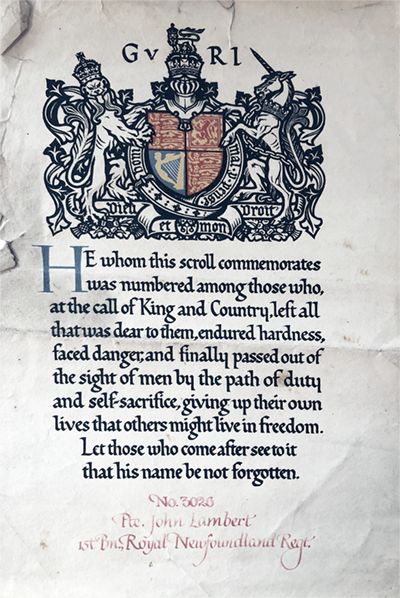 GV RI
Dieu et mon Droit
HE whom this scroll commemorates
was numbered among those who,
at the call of King and Country, left all
that was dear to them, endured hardness,
faced danger, and finally passed out of
the sight of men by the path of duty
and self-sacrifice, giving up their own
lives that others might live in freedom.
Let those who come after see to it
that his name be not forgotten.
No. 3026
Pte. John Lambert
1st Bn., Royal Newfoundland Regt.